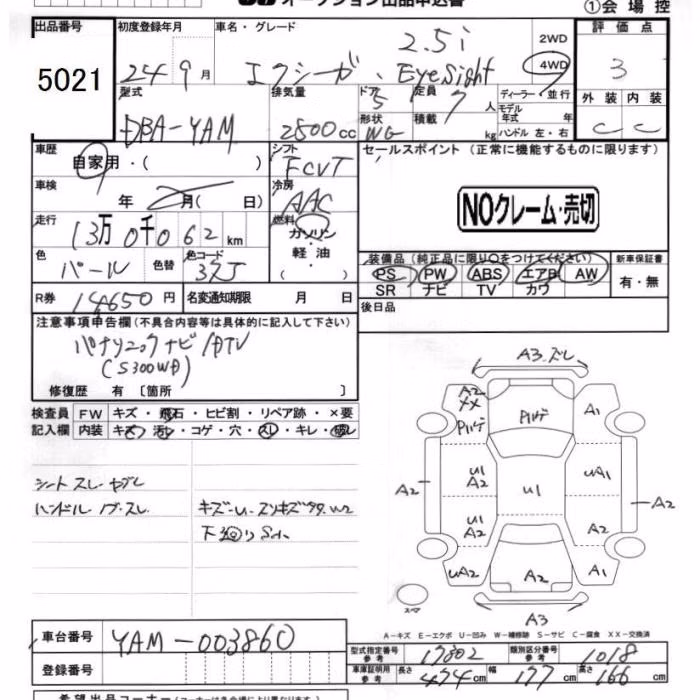 オークション出品申込書
①会場控
出品番号 初度登録年月 車名・グレード 評価点
5021 24年9月 エクシーガ 2.5i EyeSight 2WD 4WD 3
型式 排気量 ドア 5 定員 7人 ディーラー・並行 外装 内装
DBA-YAM 2500cc 形状 WG 積載 kg モデル年式 年 ハンドル 左・右 C C
車歴 自家用・( ) シフト FCVT
セールスポイント (正常に機能するものに限ります)
車検 年 月( 日) 冷房 AAC
NOクレーム・売切
走行 13万0千062km 燃料 ガソリン 軽油
色 パール 色替 色コード 37J ( )
装備品 (純正品に限り○をつけてください) 新車保証書
PS PW ABS エアB AW 有・無
SR ナビ TV カワ
R券 14650円 名変通知期限 月 日 後日品
注意事項申告欄 (不具合内容等は具体的に記入して下さい)
パナソニックナビ/DTV
(S300WD)
修復歴 有 〔箇所 〕
検査員 FW キズ・飛石・ヒビ割・リペア跡・×要
記入欄 内装 キズ・汚レ・コゲ・穴・スレ・キレ・破レ
シートスレ・ヤブレ
ハンドル・ノブ・スレ キズ・U・スリキズ W2
下回りSハ
A3.ズレ
A2 XX Pハゲ Pハゲ A1
U1 A2 UA1
A2 U1 A2
U1 A2 A2
UA2 A2 A1
スペア A3
A-キズ E-エクボ U-凹み W-補修跡 S-サビ C-腐食 XX-交換済
車台番号 YAM-003860
型式指定番号 参考 17302 類別区分番号 参考 1018
登録番号
車庫証明用 参考 長さ 474cm 幅 177cm 高さ 166cm
希望出品コーナー